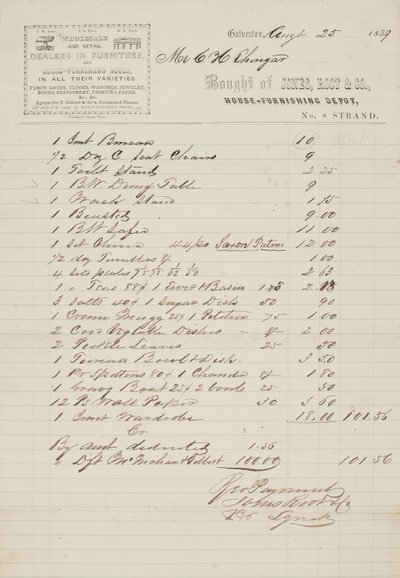 J. H. JONES. J. B. ROOT. S. W. SISSON.
WHOLESALE
AND RETAIL
DEALERS IN FURNITURE,
AND
HOUSE-FURNISHING GOODS,
IN ALL THEIR VARIETIES
FANCY GOODS, CLOCKS, WATCHES, JEWELRY,
BOOKS, STATIONERY, PRINTING PAPER,
&c., &c.
Agents for T. Gilbert & Co's. Celebrated Pianos.
Galveston, Augt 25 1859
Mr C H
Bought of JONES, ROOT & CO.,
HOUSE-FURNISHING DEPOT,
No. 8 STRAND.
1 Imt Bureau 10
1/2 Doz C Seat Chairs 9
1 Toilet Stand 2 25
1 B.W. Dining Table 9
1 Wash Stand 1.75
1 Bedsted 9.00
1 B W Safe 11 00
1 Set China 44 ps Saxon Pattern 12 00
1/2 doz Tumblers 8/ 1.00
4 sets plates 2 63
1 " Teas 88¢ 1 Ewer & Basin 1.25 2 13
3 Salts 40¢ 1 Sugar Dish 50 90
1 Cream Mugg 25¢ 1 Pitcher 75 1 00
2 Cov Vegitable Dishes 8/ 2 00
2 Pickle Leaves 25 50
1 Tureen Bowl & Dish 3 50
1 Pr Spittoons 80¢ 1 Chamber 8/ 1 80
1 Gravy Boat 25¢ 2 bowls 25 50
12 Ps Wall Paper 30 3 60
1 Imt Wardrobe 18.00 101.56
Cr
By amt deducted 1.56
" Dft 100.00 101 56
Rec Payment
Jones Root & Co
Per